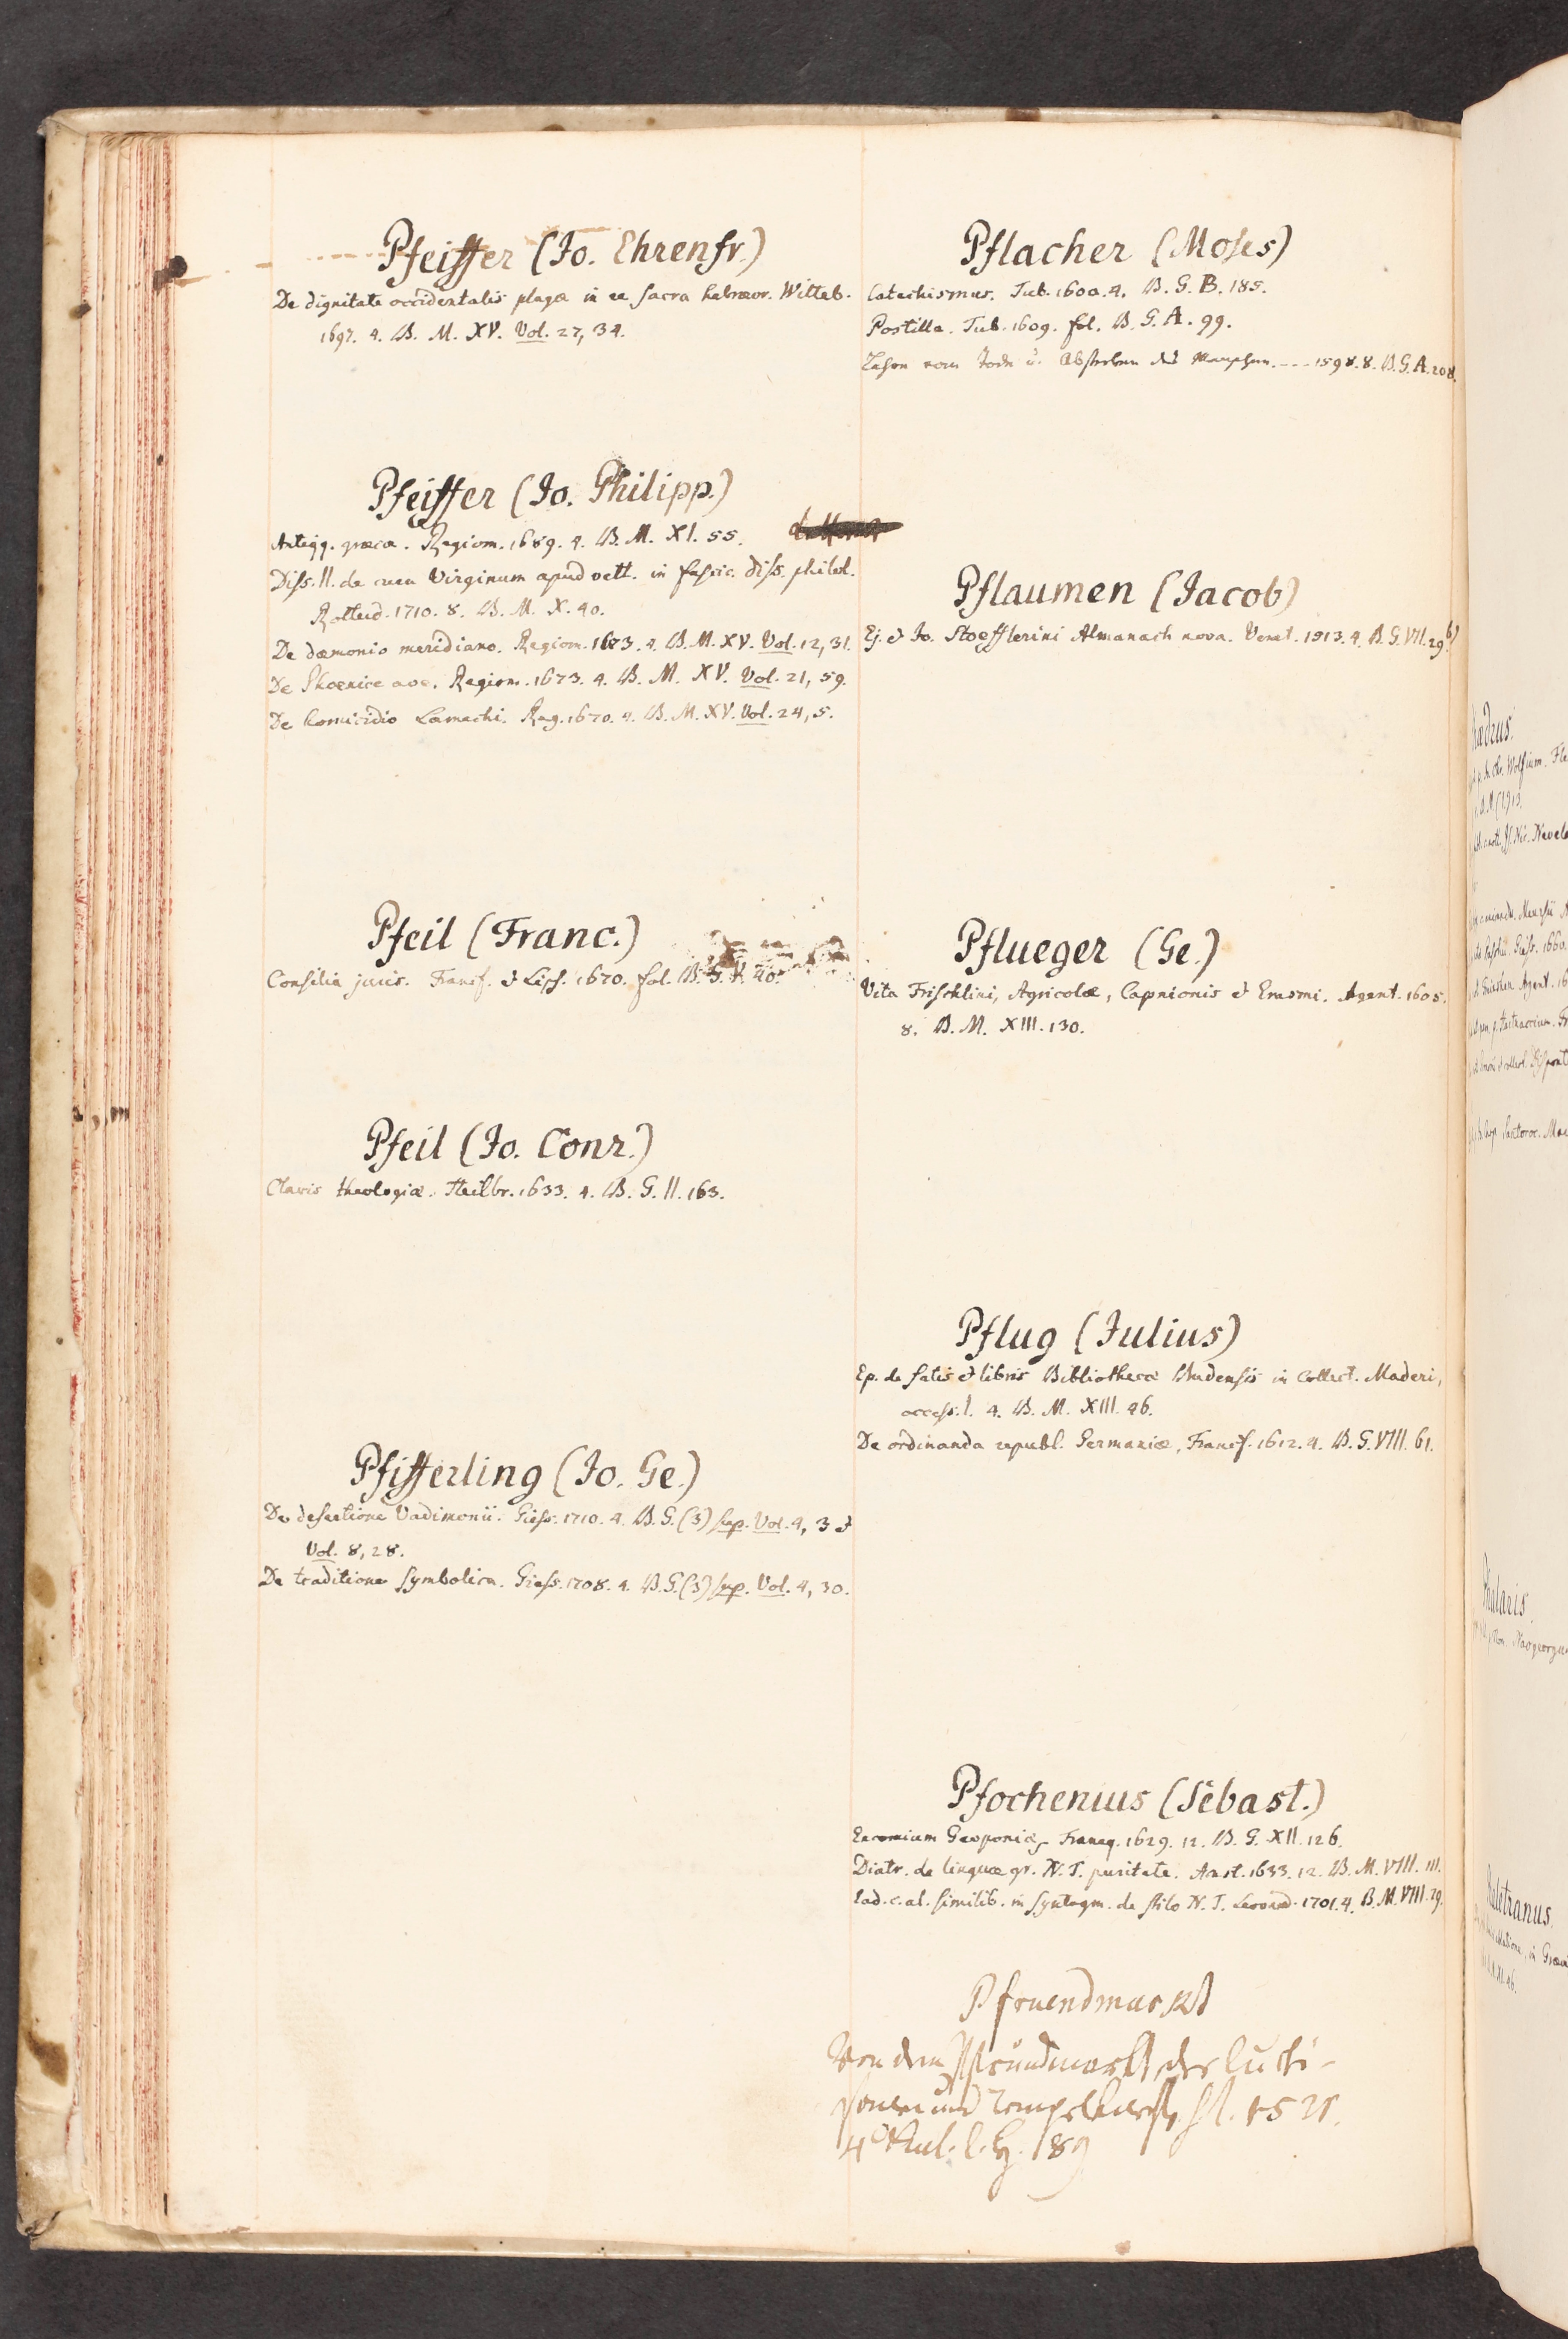 Pfeiffer (Jo. Ehrenfr.)
De dignitate occidentalis plagæ in re sacra hebræor. Witteb.
1697. 4. B. M. XV. Vol. 27, 34.
Pfeiffer (Jo. Philipp.)
Antiqq. græcæ. Regiom. 1689. 4. B. M. XI. 55.
Diss. II. de cura Virginum apud vett. in fascic. diss. philol.
Rotterd. 1710. 8. B. M. X. 40.
De dæmonio meridiano. Regiom. 1673. 4. B. M. XV. Vol. 12, 31.
De Phoenice ave. Regiom. 1673. 4. B. M. XV. Vol. 21, 59.
De homicidio Lamechi. Reg. 1670. 4. B. M. XV. Vol. 24, 5.
Pfeil (Franc.)
Consilia juris. Francf. & Lips. 1670. fol. B. G. V. 40.
Pfeil (Jo. Conr.)
Clavis theologiæ. Heilbr. 1633. 4. B. G. II. 163.
Pfifferling (Jo. Ge.)
De desertione Vadimonii. Giess. 1710. 4. B. G. (3) sup. Vol. 4, 3 &
Vol. 8, 28.
De traditione symbolica. Giess. 1708. 4. B. G. (3) sup. Vol. 4, 30.
Pflacher (Moses)
Catechismus. Tub. 1600. 4. B. G. B. 185.
Postilla. Tub. 1609. fol. B. G. A. 99.
vom Tode u. Absterben des Menschen. --- 1598. 8. B. G. A. 208.
Pflaumen (Jacob)
Ej. & Jo. Stoefflerini Almanach nova. Venet. 1513. 4. B. G. VII. 29 b)
Pflueger (Ge.)
Vita Frischlini, Agricolæ, Capnionis & Erasmi. Argent. 1605.
8. B. M. XIII. 130.
Pflug (Julius)
Ep. de fatis & libris Bibliothecæ Budensis in Collect. Maderi,
access. I. 4. B. M. XIII. 46.
De ordinanda republ. Germaniæ, Francf. 1612. 4. B. G. VIII. 61.
Pfochenius (Sebast.)
Encomium Geoponiæ. Franeq. 1629. 12. B. G. XII. 126.
Diatr. de linguæ gr. N. T. puritate. Amst. 1633. 12. B. M. VIII. 111.
Ead. c. al. similib. in Syntagm. de stilo N. T. Leovard. 1701. 4. B. M. VIII. 29.
Pfruendmarkt
Von dem Pfründmarkt der Curti-
sanen und Tempelknecht, s. l. 1521.